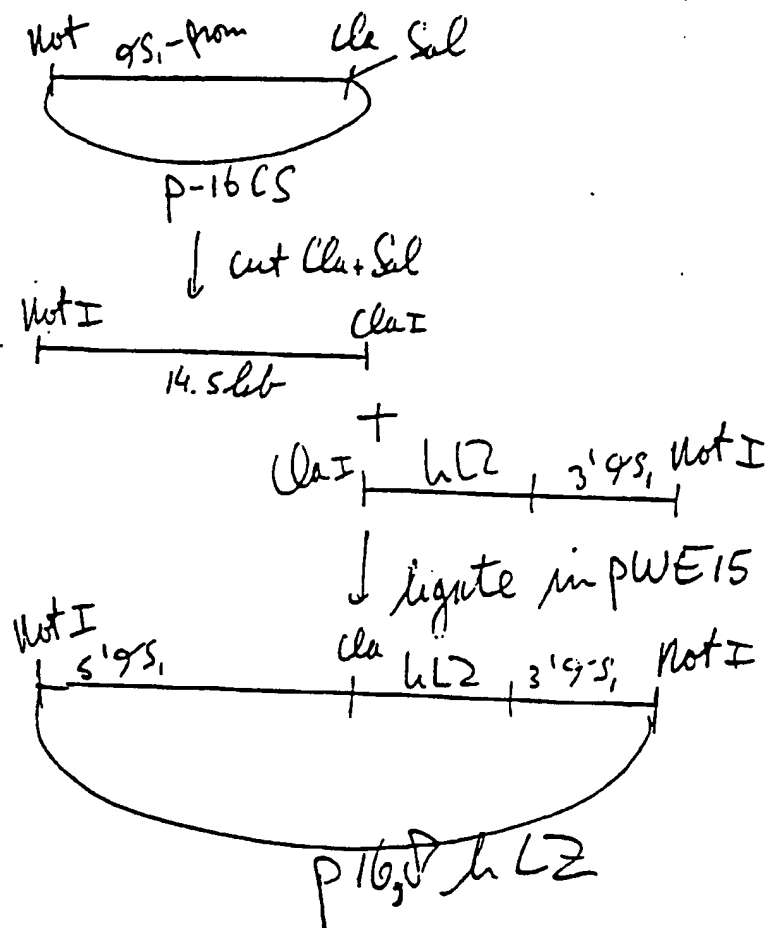 Not αS₁-prom Cla Sal
p-16CS
↓ cut Cla+Sal
Not I Cla I
14.5kb
+
Cla I hLZ 3'αS₁ Not I
↓ ligate in pWE15
Not I 5'αS₁ Cla hLZ 3'αS₁ Not I
p16,8 hLZ